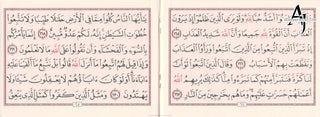 أَشَدُّ حُبًّا لِّلَّهِ وَلَوْ يَرَى الَّذِينَ ظَلَمُوا إِذْ يَرَوْنَ
الْعَذَابَ أَنَّ الْقُوَّةَ لِلَّهِ جَمِيعًا وَأَنَّ اللَّهَ شَدِيدُ الْعَذَابِ
إِذْ تَبَرَّأَ الَّذِينَ اتُّبِعُوا مِنَ الَّذِينَ اتَّبَعُوا وَرَأَوُا الْعَذَابَ
وَتَقَطَّعَتْ بِهِمُ الْأَسْبَابُ وَقَالَ الَّذِينَ اتَّبَعُوا لَوْ أَنَّ
لَنَا كَرَّةً فَنَتَبَرَّأَ مِنْهُمْ كَمَا تَبَرَّءُوا مِنَّا كَذَٰلِكَ يُرِيهِمُ اللَّهُ
أَعْمَالَهُمْ حَسَرَاتٍ عَلَيْهِمْ وَمَا هُم بِخَارِجِينَ مِنَ النَّارِ
يَا أَيُّهَا النَّاسُ كُلُوا مِمَّا فِي الْأَرْضِ حَلَالًا طَيِّبًا وَلَا تَتَّبِعُوا
خُطُوَاتِ الشَّيْطَانِ إِنَّهُ لَكُمْ عَدُوٌّ مُّبِينٌ إِنَّمَا يَأْمُرُكُم
بِالسُّوءِ وَالْفَحْشَاءِ وَأَن تَقُولُوا عَلَى اللَّهِ مَا لَا تَعْلَمُونَ
وَإِذَا قِيلَ لَهُمُ اتَّبِعُوا مَا أَنزَلَ اللَّهُ قَالُوا بَلْ نَتَّبِعُ مَا أَلْفَيْنَا عَلَيْهِ
آبَاءَنَا أَوَلَوْ كَانَ آبَاؤُهُمْ لَا يَعْقِلُونَ شَيْئًا وَلَا
يَهْتَدُونَ وَمَثَلُ الَّذِينَ كَفَرُوا كَمَثَلِ الَّذِي يَنْعِقُ